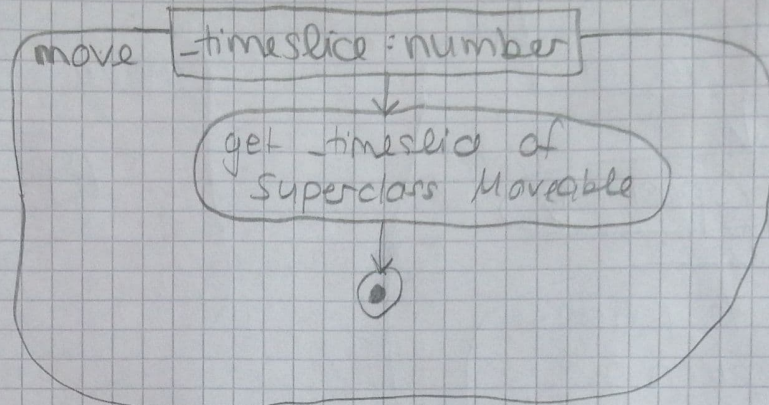 move
_timeslice : number
get _timeslic of
Superclass Moveable